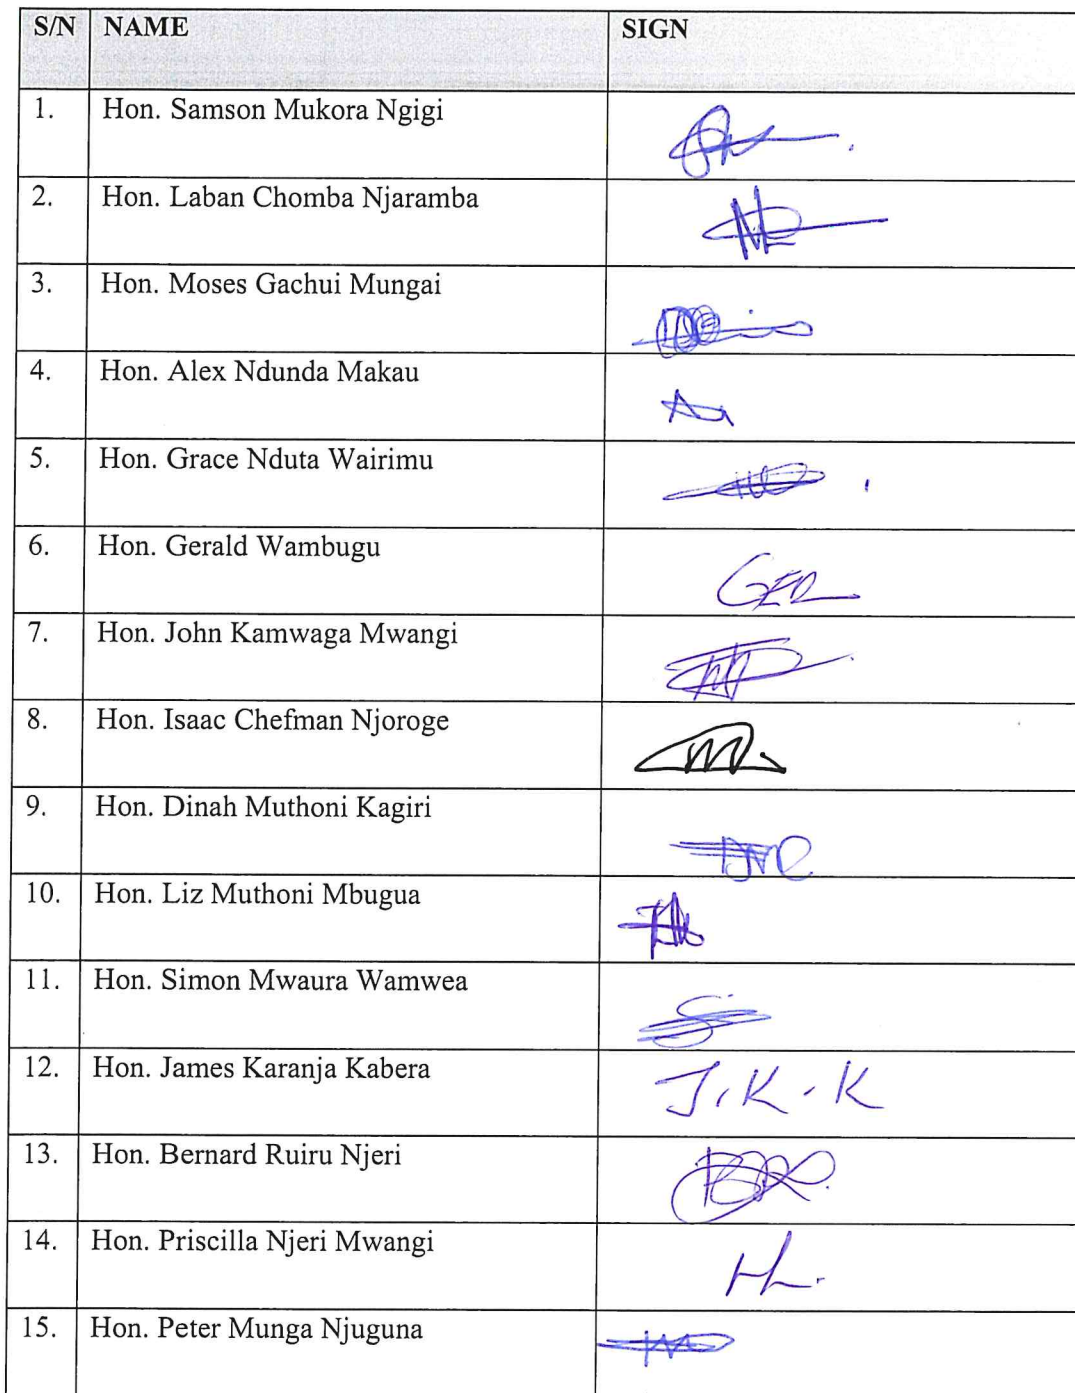 S/N NAME SIGN
1. Hon. Samson Mukora Ngigi
2. Hon. Laban Chomba Njaramba
3. Hon. Moses Gachui Mungai
4. Hon. Alex Ndunda Makau
5. Hon. Grace Nduta Wairimu
6. Hon. Gerald Wambugu GER
7. Hon. John Kamwaga Mwangi
8. Hon. Isaac Chefman Njoroge
9. Hon. Dinah Muthoni Kagiri
10. Hon. Liz Muthoni Mbugua
11. Hon. Simon Mwaura Wamwea
12. Hon. James Karanja Kabera J.K.K
13. Hon. Bernard Ruiru Njeri
14. Hon. Priscilla Njeri Mwangi
15. Hon. Peter Munga Njuguna